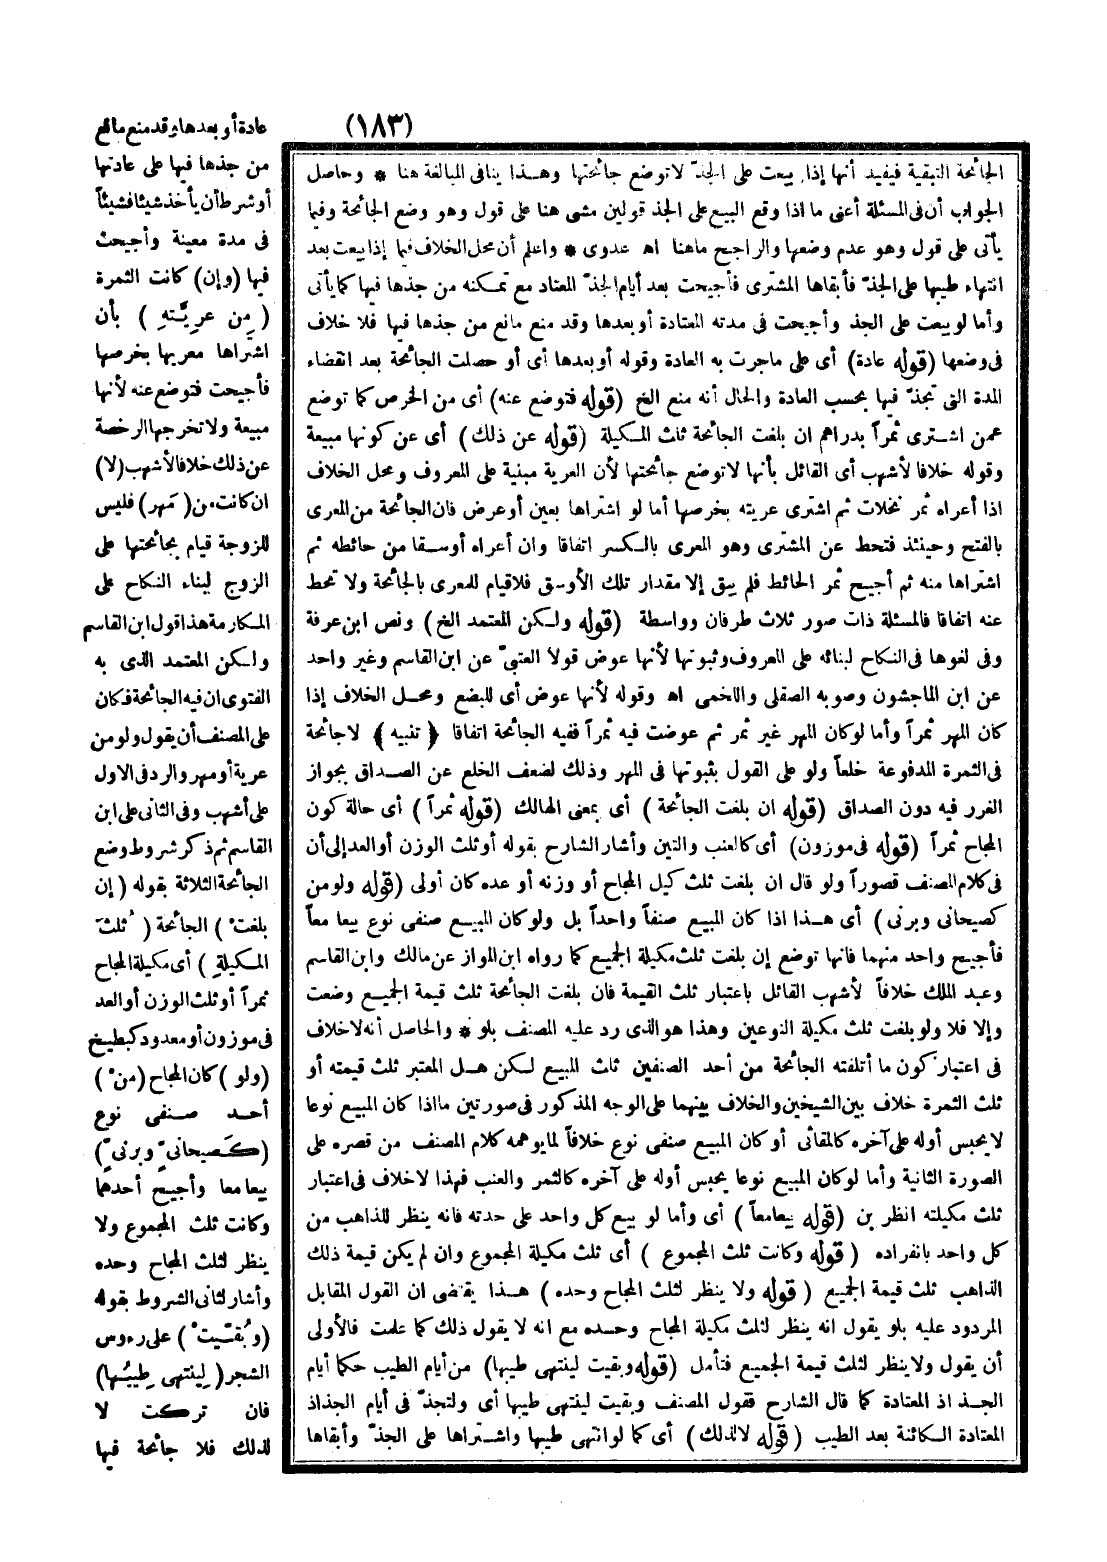 (١٨٣)
الجائحة التبقية فيفيد أنها إذا بيعت على الجذّ لا توضع جائحتها وهــذا ينافى المبالغة هنا * وحاصل
الجواب أن فى المسئلة أعنى ما اذا وقع البيع على الجذ قولين مشى هنا على قول وهو وضع الجائحة وفيما
يأتى على قول وهو عدم وضعها والراجح ماهنا اه عدوى * واعلم أن محل الخلاف فيما إذا بيعت بعد
انتهاء طيبها على الجذّ فأبقاها المشترى فأجيحت بعد أيام الجذّ المعتاد مع تمكنه من جذها فيها كما يأتى
وأما لو بيعت على الجذ وأجيحت فى مدته المعتادة أو بعدها وقد منع مانع من جذها فيها فلا خلاف
فى وضعها (قوله عادة) أى على ماجرت به العادة وقوله أو بعدها أى أو حصلت الجائحة بعد انقضاء
المدة التى تجذّ فيها بحسب العادة والحال أنه منع الخ (قوله فتوضع عنه) أى من الخرص كما توضع
عمن اشـترى ثمراً بدراهم ان بلغت الجائحة ثلث المـكيلة (قوله عن ذلك) أى عن كونها مبيعة
وقوله خلافا لأشهب أى القائل بأنها لا توضع جائحتها لأن العرية مبنية على المعروف ومحل الخلاف
اذا أعراه ثمر نخلات ثم اشترى عريته بخرصها أما لو اشتراها بعين أو عرض فان الجائحة من المعرى
بالفتح وحينئذ فتحط عن المشترى وهو المعرى بالـكسر اتفاقا وان أعراه أوسـقا من حائطه ثم
اشتراها منه ثم أجيح ثمر الحائط فلم يبق إلا مقدار تلك الأوسق فلا قيام للمعرى بالجائحة ولا تحط
عنه اتفاقا فالمسئلة ذات صور ثلاث طرفان وواسطة (قوله ولـكن المعتمد الخ) ونص ابن عرفة
وفى لغوها فى النكاح لبنائه على المعروف وثبوتها لأنها عوض قولا العتبىّ عن ابن القاسم وغير واحد
عن ابن الماجشون وصوبه الصقلى واللخمى اه وقوله لأنها عوض أى للبضع ومحـل الخلاف إذا
كان المهر ثمراً وأما لو كان المهر غير ثمر ثم عوضت فيه ثمراً ففيه الجائحة اتفاقا ﴿ تنبيه ﴾ لا جائحة
فى الثمرة المدفوعة خلعاً ولو على القول بثبوتها فى المهر وذلك لضعف الخلع عن الصـداق بجواز
الغرر فيه دون الصداق (قوله ان بلغت الجائحة) أى بمعنى الهالك (قوله ثمراً) أى حالة كون
المجاح ثمراً (قوله فى موزون) أى كالعنب والتين وأشار الشارح بقوله أو ثلث الوزن أو العد إلى أن
فى كلام المصنف قصوراً ولو قال ان بلغت ثلث كيل المجاح أو وزنه أو عده كان أولى (قوله ولو من
كصيحانى وبرنى) أى هــذا اذا كان المبيع صنفاً واحداً بل ولو كان المبيـع صنفى نوع بيعا معاً
فأجيح واحد منهما فانها توضع إن بلغت ثلث مكيلة الجميع كما رواه ابن المواز عن مالك وابن القاسم
وعبد الملك خلافاً لأشهب القائل باعتبار ثلث القيمة فان بلغت الجائحة ثلث قيمة الجميـع وضعت
وإلا فلا ولو بلغت ثلث مكيلة النوعين وهذا هو الذى رد عليه المصنف بلو * والحاصل أنه لا خلاف
فى اعتبار كون ما أتلفته الجائحة من أحد الصنفين ثلث المبيع لـكن هــل المعتبر ثلث قيمته أو
ثلث الثمرة خلاف بين الشيخين والخلاف بينهما على الوجه المذكور فى صورتين ما اذا كان المبيع نوعا
لا يحبس أوله على آخره كالمقاثى أو كان المبيع صنفى نوع خلافاً لما يوهمه كلام المصنف من قصره على
الصورة الثانية وأما لو كان المبيع نوعا يحبس أوله على آخره كالثمر والعنب فهذا لا خلاف فى اعتبار
ثلث مكيلته انظر بن (قوله بيعا معاً) أى وأما لو بيع كل واحد على حدته فانه ينظر للذاهب من
كل واحد بانفراده (قوله وكانت ثلث المجموع) أى ثلث مكيلة المجموع وان لم يكن قيمة ذلك
الذاهب ثلث قيمة الجميع (قوله ولا ينظر لثلث المجاح وحده) هــذا يقتضى ان القول المقابل
المردود عليه بلو يقول انه ينظر لثلث مكيلة المجاح وحـده مع انه لا يقول ذلك كما علمت فالأولى
أن يقول ولا ينظر لثلث قيمة الجميع فتأمل (قوله وبقيت لينتهى طيبها) من أيام الطيب حكما أيام
الجـذاذ المعتادة كما قال الشارح فقول المصنف وبقيت لينتهى طيبها أى ولتجذّ فى أيام الجذاذ
المعتادة الـكائنة بعد الطيب (قوله لا لذلك) أى كما لو انتهى طيبها واشـتراها على الجذّ وأبقاها
عادة أو بعدها وقد منع مانع
من جذها فيها على عادتها
أو شرط أن يأخذ شيئا فشيئاً
فى مدة معينة وأجيحت
فيها (وإن) كانت الثمرة
(مِن عرِيَّتهِ) بأن
اشتراها معريها بخرصها
فأجيحت فتوضع عنه لأنها
مبيعة ولا تخرجها الرخصة
عن ذلك خلافا لأشهب (لا)
ان كانت من (مَهر) فليس
للزوجة قيام بجائحتها على
الزوج لبناء النكاح على
المـكارمة هذا قول ابن القاسم
ولـكن المعتمد الذى به
الفتوى ان فيه الجائحة فكان
على المصنف أن يقول ولو من
عرية أو مهر والرد فى الاول
على أشهب وفى الثانى على ابن
القاسم ثم ذكر شروط وضع
الجائحة الثلاثة بقوله (إن
بلغتْ) الجائحة (ثُلثَ
المـكيلةِ) أى مكيلة المجاح
ثمراً أو ثلث الوزن أو العد
فى موزون أو معدود كبطيخ
(ولو) كان المجاح (منْ)
أحد صنفى نوع
(كَصيحانىٍّ وبرنىٍّ)
بيعا معا وأجيـح أحدهما
وكانت ثلث المجموع ولا
ينظر لثلث المجاح وحده
وأشار لثانى الشروط بقوله
(وبُقّيتْ) على رءوس
الشجر (لِينتهى طِيبُها)
فان تركت لا
لذلك فلا جائحة فيها